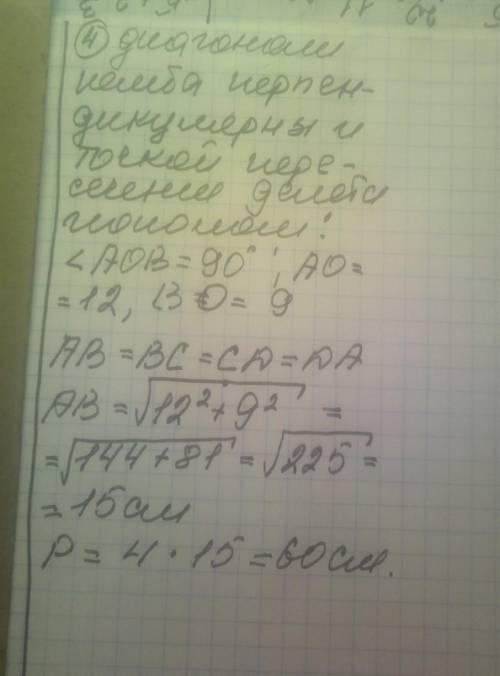 ④ диагонали
ромба перпен-
дикулярны и
точкой пере-
сечения делятся
пополам!
∠AOB = 90°, AO =
= 12, BO = 9
AB = BC = CD = DA
AB = √12² + 9² =
= √144 + 81 = √225 =
= 15 см
P = 4 · 15 = 60 см.